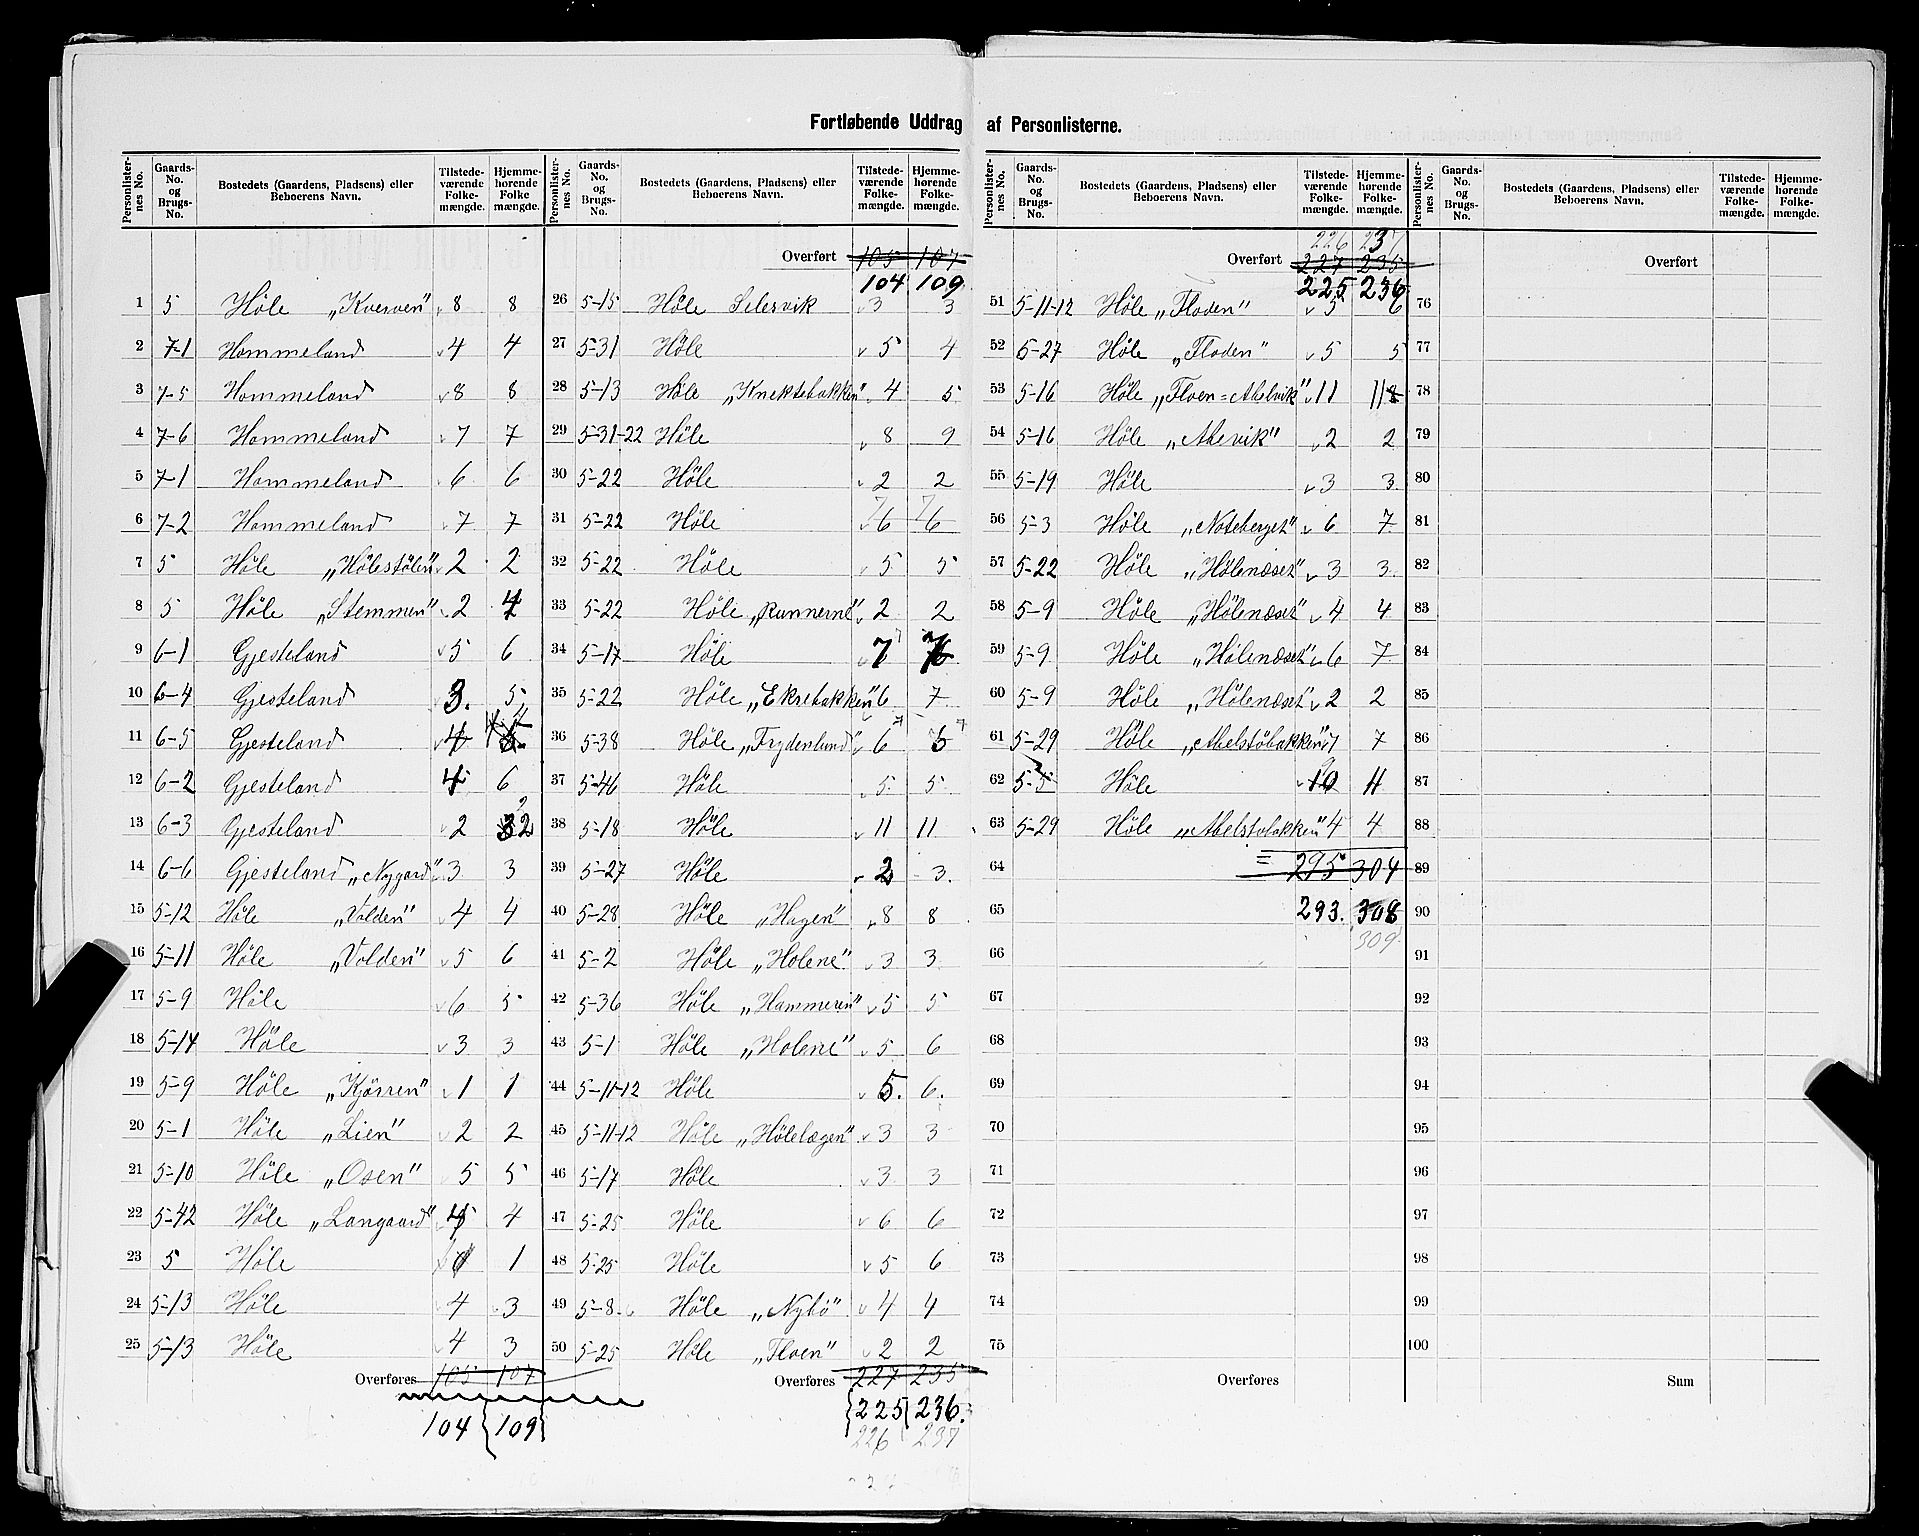 Fortløbende Uddrag af Personlisterne.
Personlisternes No. Gaards-No. og Brugs-No. Bostedets (Gaardens, Pladsens) eller Beboerens Navn. Tilstedeværende Folkemængde. Hjemmehørende Folkemængde.
1 5 Höle „Kversven" 8 8
2 7-1 Hommeland 4 4
3 7-5 Hommeland 8 8
4 7-6 Hommeland 7 7
5 7-1 Hommeland 6 6
6 7-2 Hommeland 7 7
7 5 Höle „Hölestölen" 2 2
8 5 Höle „Stemmen" 2 4
9 6-1 Gjesteland 5 6
10 6-4 Gjesteland 3. 5
11 6-5 Gjesteland 4
12 6-2 Gjesteland 4 6
13 6-3 Gjesteland 2 2
14 6-6 Gjesteland „Nygard" 3 3
15 5-12 Höle „Volden" 4 4
16 5-11 Höle „Volden" 5 6
17 5-9 Höle 6 5
18 5-14 Höle 3 3
19 5-9 Höle „Kjörren" 1 1
20 5-1 Höle „Lien" 2 2
21 5-10 Höle „Osen" 5 5
22 5-42 Höle „Langaard" 4
23 5 Höle 1
24 5-13 Höle 4 3
25 5-13 Höle 4 3
Overføres 105 107
104 109
Personlisternes No. Gaards-No. og Brugs-No. Bostedets (Gaardens, Pladsens) eller Beboerens Navn. Tilstedeværende Folkemængde. Hjemmehørende Folkemængde.
Overført 105 107
104 109
26 5-15 Höle Selesvik 3 3
27 5-31 Höle 5 4
28 5-13 Höle „Knektebakken" 4 5
29 5-31-22 Höle 8 9
30 5-22 Höle 2 2
7 7
31 5-22 Höle 6 6
32 5-22 Höle 5 5
33 5-22 Höle „Runnerne" 2 2
34 5-17 Höle 7 7
35 5-22 Höle „Ekrebakken" 6 7
36 5-38 Höle „Frydenlund" 6 6
37 5-46 Höle 5 5
38 5-18 Höle 11 11
39 5-27 Höle 2 3.
40 5-28 Höle „Hagen" 8 8
41 5-2 Höle „Holene" 3 3
42 5-36 Höle „Hammeren" 5 5
43 5-1 Höle „Holene" 5 6
44 5-11-12 Höle 5. 6.
45 5-11-12 Höle „Hölelægen" 3 3
46 5-17 Höle 3 3
47 5-25 Höle 6 6
48 5-25 Höle 5 6
49 5-8 Höle „Nybö" 4 4
50 5-25 Höle „Floen" 2 2
Overføres 227 235
225 236.
226 237
Personlisternes No. Gaards-No. og Brugs-No. Bostedets (Gaardens, Pladsens) eller Beboerens Navn. Tilstedeværende Folkemængde. Hjemmehørende Folkemængde.
226 237
Overført 227 235
225 236
51 5-11-12 Höle „Floden" 5 6
52 5-27 Höle „Floden" 5 5
53 5-16 Höle „Floen=Abelvik" 11 11
54 5-16 Höle „Abevik" 2 2
55 5-19 Höle 3 3
56 5-3 Höle „Noteberget" 6 7
57 5-22 Höle „Hölenæset" 3 3
58 5-9 Höle „Hölenæset" 4 4
59 5-9 Höle „Hölenæset" 6 7
60 5-9 Höle „Hölenæset" 2 2
61 5-29 Höle „Abelstöbakken" 7 7
62 5-5 Höle 10 11
63 5-29 Höle „Abelstobakken" 4 4
64 = 295 304
65 293. 308
66 309
67
68
69
70
71
72
73
74
75
Overføres
Personlisternes No. Gaards-No. og Brugs-No. Bostedets (Gaardens, Pladsens) eller Beboerens Navn. Tilstedeværende Folkemængde. Hjemmehørende Folkemængde.
Overført
76
77
78
79
80
81
82
83
84
85
86
87
88
89
90
91
92
93
94
95
96
97
98
99
100
Sum